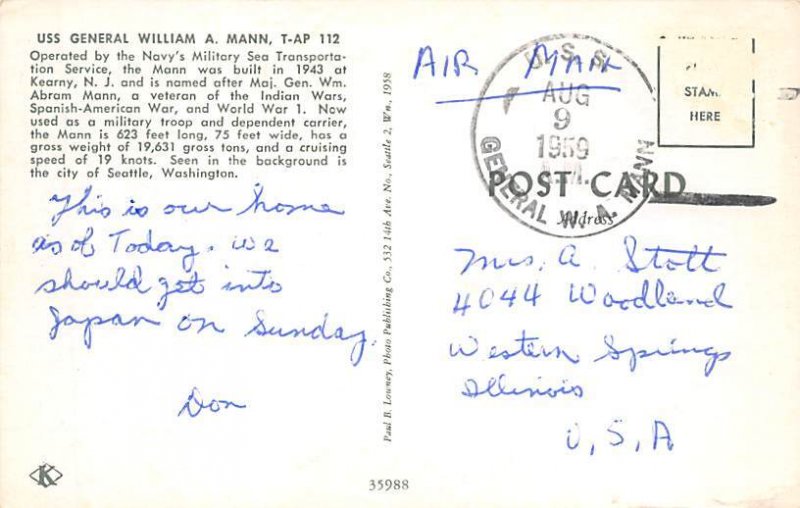 USS GENERAL WILLIAM A. MANN, T-AP 112
Operated by the Navy's Military Sea Transporta-
tion Service, the Mann was built in 1943 at
Kearny, N. J. and is named after Maj. Gen. Wm.
Abram Mann, a veteran of the Indian Wars,
Spanish-American War, and World War 1. Now
used as a military troop and dependent carrier,
the Mann is 623 feet long, 75 feet wide, has a
gross weight of 19,631 gross tons, and a cruising
speed of 19 knots. Seen in the background is
the city of Seattle, Washington.
This is our home
as of Today. We
should get into
Japan on Sunday.
Don
K
Paul B. Lowney, Photo Publishing Co., 532 14th Ave. No., Seattle 2, Wn., 1958
35988
AIR MAIL
U.S.S.
AUG
9
1959
A.M.
GENERAL W. A. MANN
STAMP
HERE
POST CARD
Address
Mrs. A. Stott
4044 Woodland
Western Springs
Illinois
U.S.A